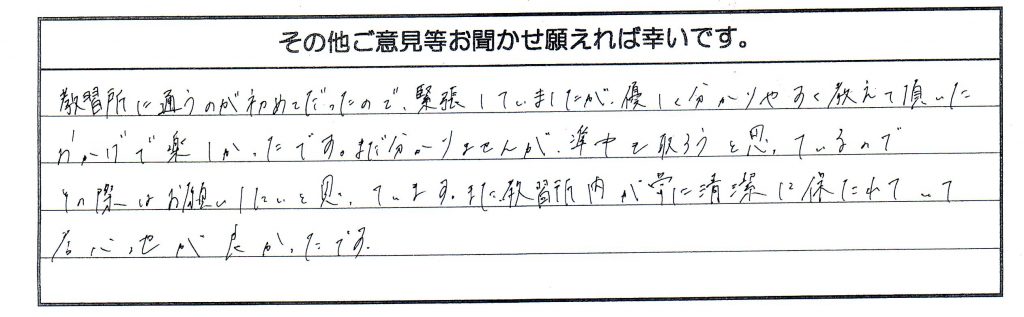 その他ご意見等お聞かせ願えれば幸いです。
教習所に通うのが初めてだったので、緊張していましたが、優しく分かりやすく教えて頂いた
おかげで楽しかったです。まだ分かりませんが、準中を取ろうと思っているので
その際はお願いしたいと思っています。また教習所内が常に清潔に保たれていて
居心地が良かったです。